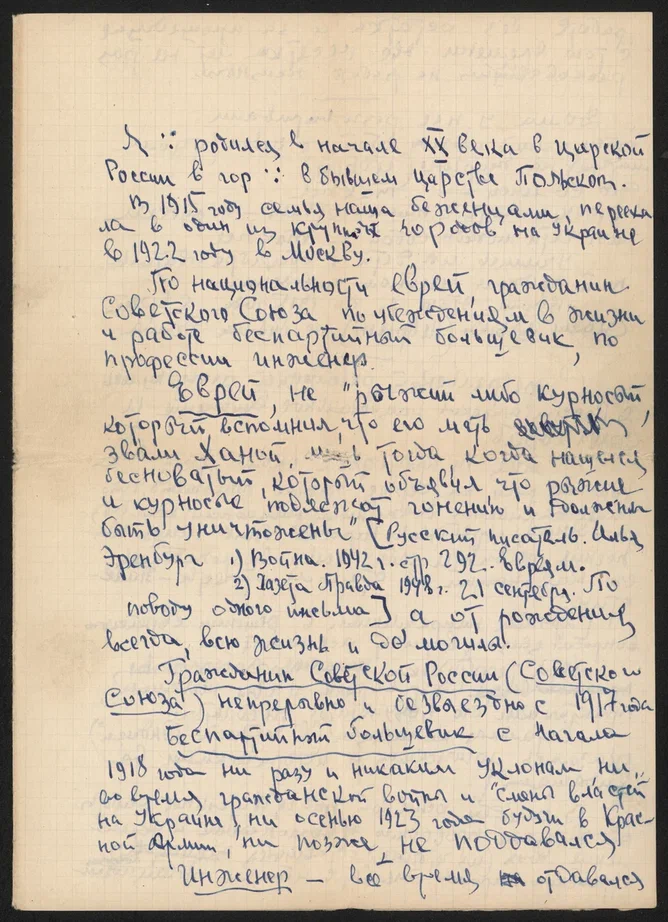 Я ∵ родился в начале XX века в царской
России в гор ∵ в бывшем царстве Польском.
В 1915 году семья наша беженцами, перееха
ла в один из крупных городов на Украине
в 1922 году в Москву.
По национальности еврей, гражданин
Советского Союза по убеждениям в жизни
и работе беспартийный большевик, по
профессии инженер.
Еврей, не "рыжий либо курносый,
который вспомнил, что его мать
звали Ханой, тогда, когда нашелся
бесноватый, который объявил что рыжие
и курносые подлежат гонению и должны
быть уничтожены" [Русский писатель. Илья
Эренбург 1) Война. 1942 г. стр. 292. Евреям.
2) Газета Правда 1948 г. 21 сентября. По
поводу одного письма] а от рождения
всегда, всю жизнь и до могилы.
Гражданин Советской России (Советского
Союза) непрерывно и безвыездно с 1917 года
Беспартийный большевик с начала
1918 года ни разу и никаким уклонам ни
во время гражданской войны и "смены властей
на Украине, ни осенью 1923 года будучи в Крас-
ной Армии, ни позже не поддавался
Инженер – все время отдавался